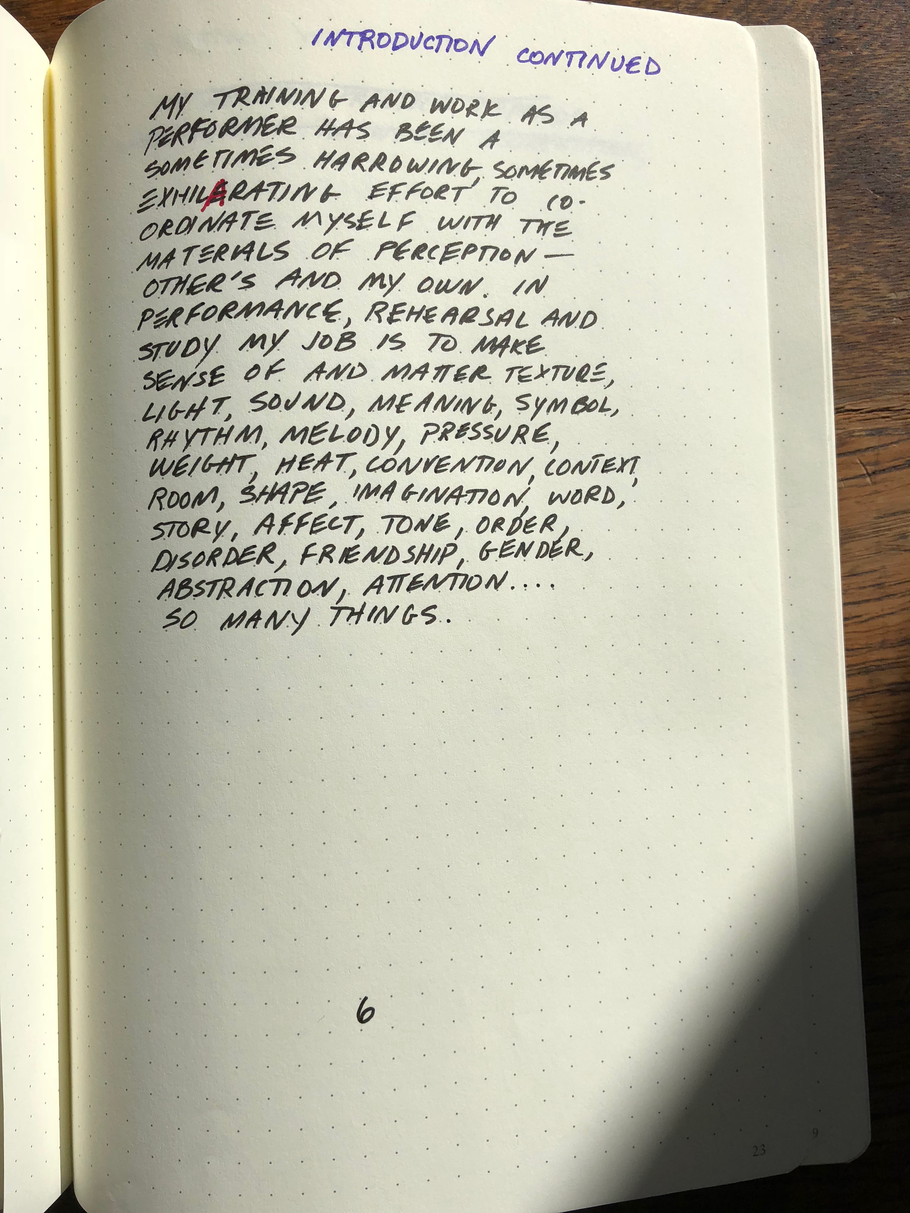 INTRODUCTION CONTINUED
MY TRAINING AND WORK AS A
PERFORMER HAS BEEN A
SOMETIMES HARROWING, SOMETIMES
EXHILARATING EFFORT TO CO-
ORDINATE MYSELF WITH THE
MATERIALS OF PERCEPTION —
OTHER'S AND MY OWN. IN
PERFORMANCE, REHEARSAL AND
STUDY MY JOB IS TO MAKE
SENSE OF AND MATTER TEXTURE,
LIGHT, SOUND, MEANING, SYMBOL,
RHYTHM, MELODY, PRESSURE,
WEIGHT, HEAT, CONVENTION, CONTEXT,
ROOM, SHAPE, IMAGINATION, WORD,
STORY, AFFECT, TONE, ORDER,
DISORDER, FRIENDSHIP, GENDER,
ABSTRACTION, ATTENTION....
SO MANY THINGS.
6
23
9